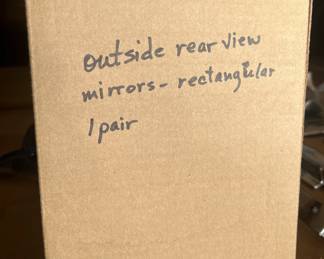 outside rear view
mirrors - rectangular
1 pair